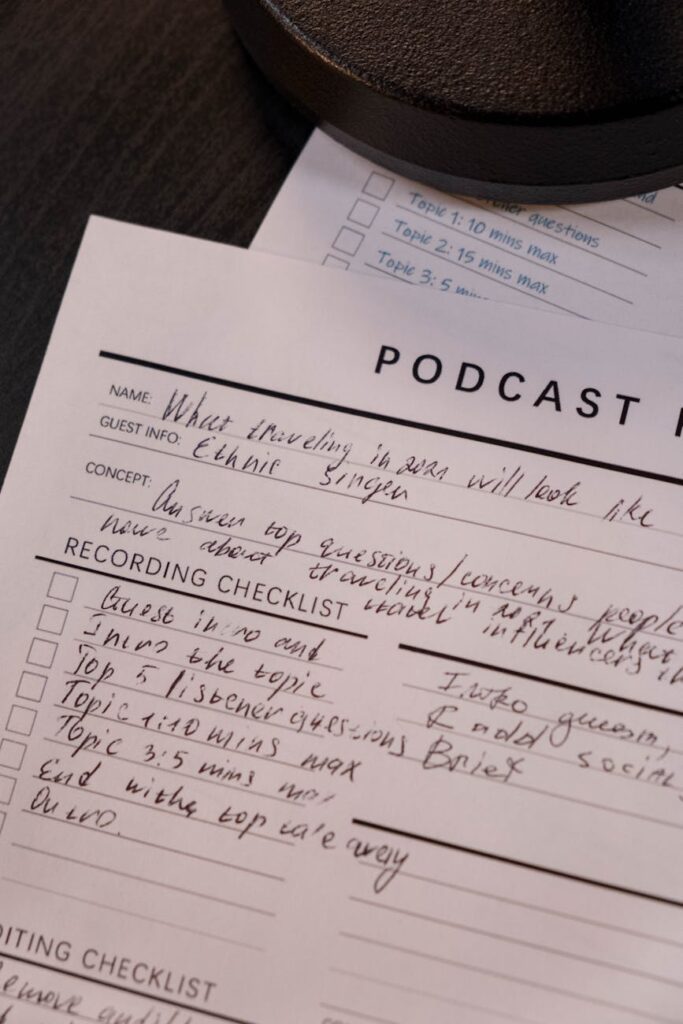 questions
Topic 1: 10 mins max
Topic 2: 15 mins max
Topic 3: 5 mins
PODCAST
NAME: What traveling in 2021 will look like
GUEST INFO: Ethnic Singer
CONCEPT: Answer top questions/concerns people
have about traveling in 2021 What
travel influencers
RECORDING CHECKLIST
Guest intro and
Intro the topic
Top 5 listener questions
Topic 1:10 mins max
Topic 3:5 mins max
End with a top
Outro.
Intro
& add social
Brief
EDITING CHECKLIST
Remove